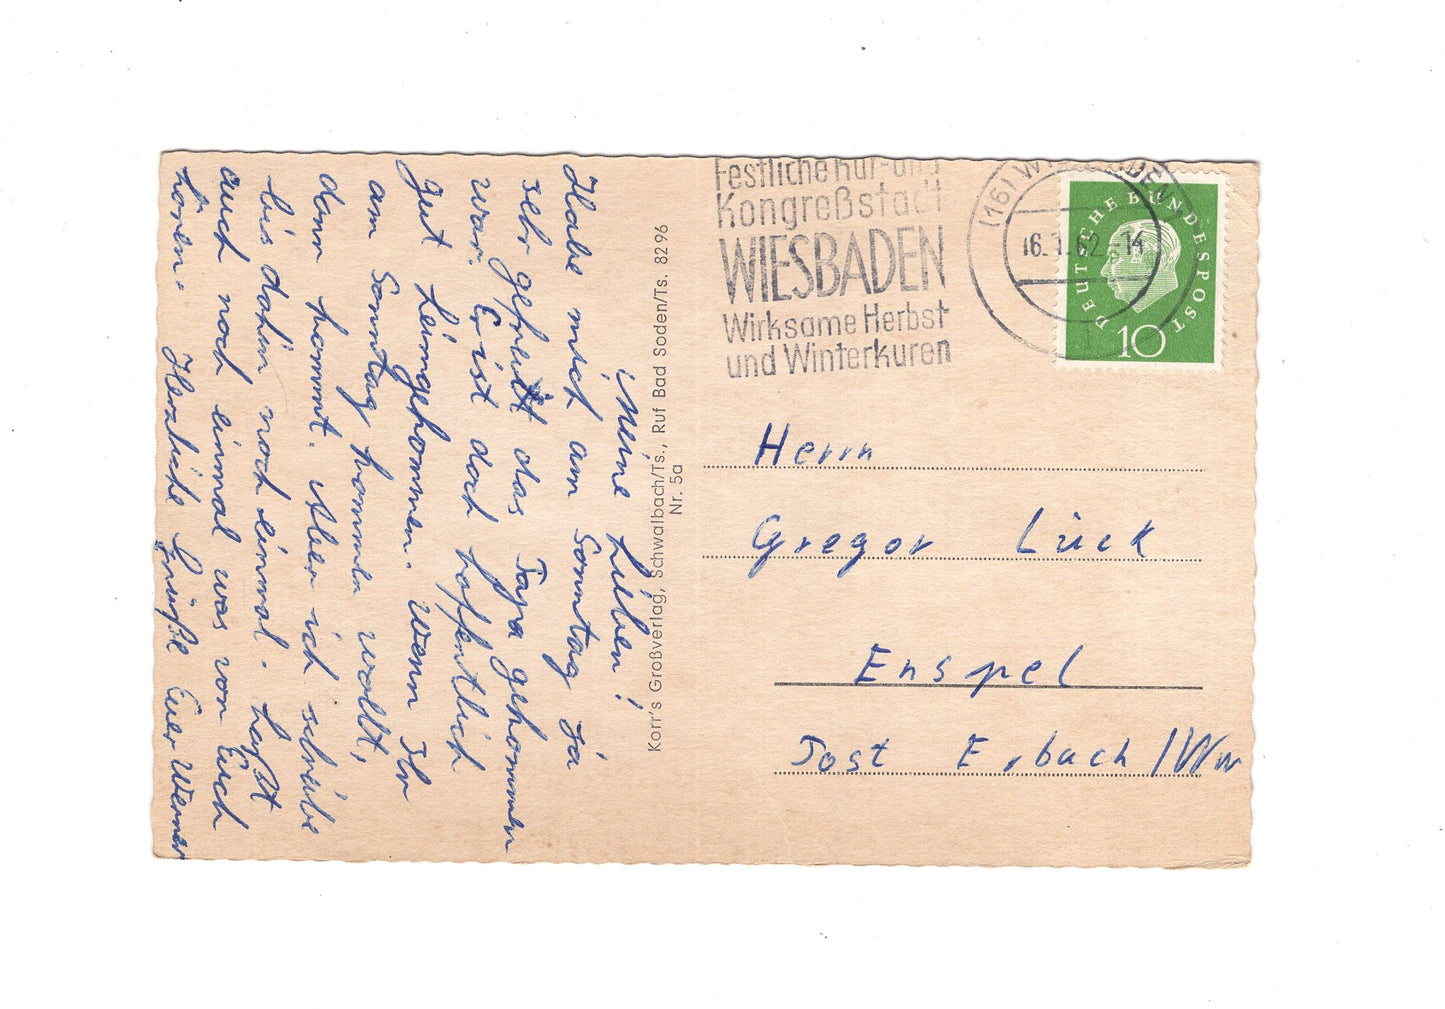 Meine Lieben!
Habe mich am Sonntag ja
sehr gefreut das Papa gekommen
war. Er ist doch hoffentlich
gut heimgekommen. Wenn Ihr
am Sonntag kommen wollt,
dann kommt. Aber ich schreibe
bis dahin noch einmal.
auch noch einmal was von Euch
hören. Herzliche Grüße Euer Werner
Korr's Großverlag, Schwalbach/Ts., Ruf Bad Soden/Ts. 8296
Nr. 5a
Festliche Kur- und
Kongreßstadt
WIESBADEN
Wirksame Herbst
und Winterkuren
(16) WIESBADEN
16.1.62-14
DEUTSCHE BUNDESPOST
10
Herrn
Gregor Lück
Enspel
Post Erbach/Ww